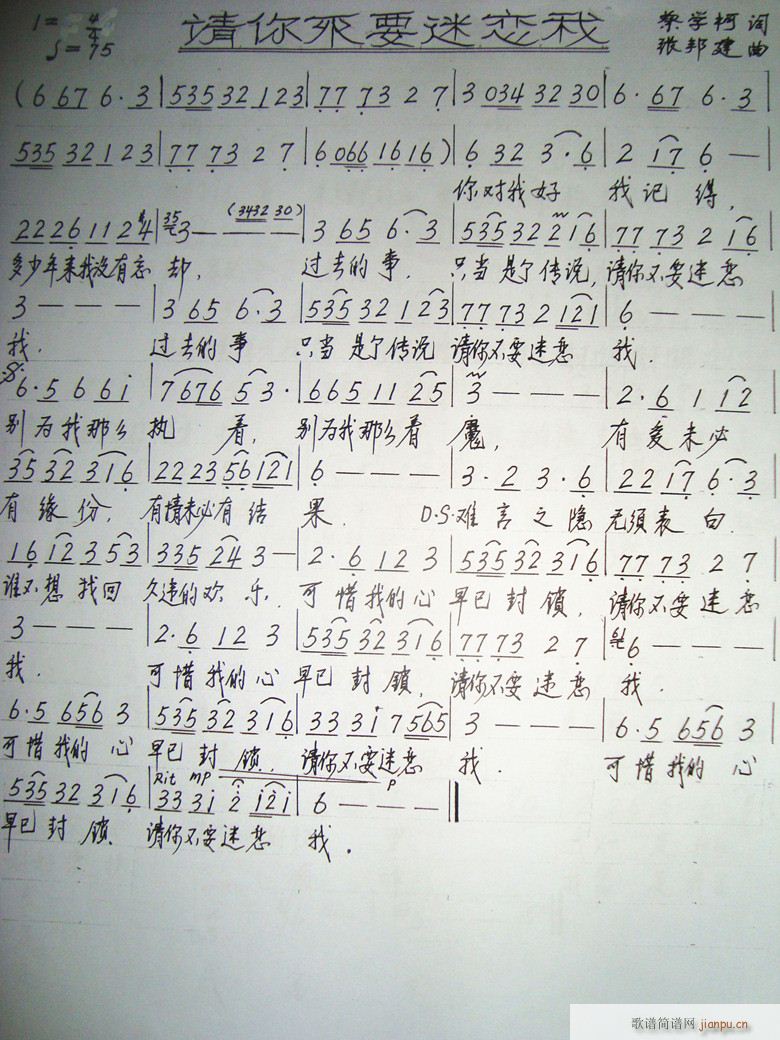 1= 4/4
♩=75
請你不要迷恋我
蔡学柯 词
张邦建 曲
(6 67 6·3 | 535 32 123 | 77 73 2 7 | 3 034 32 30 | 6·67 6·3
535 32 1 23 | 77 73 2 7 | 6 066 1616) | 6 32 3·6 | 2 17 6 —
你对我好 我记得,
2226 112 4 | 3 — — (3432 30) | 3 65 6·3 | 535 32 216 | 77 73 2 16
多少年来我没有忘却, 过去的事, 只当是个传说, 请你不要迷恋
3 — — — | 3 65 6·3 | 535 32 1 23 | 77 73 2 121 | 6 — — —
我. 过去的事 只当是个传说 请你不要迷恋 我.
6·5 6 6i | 7676 53· | 665 11 25 | 3 — — — | 2·6 1 12
别为我那么执着, 别为我那么着魔, 有爱未必
35 32 316 | 22 23 56 121 | 6 — — — | 3·2 3·6 | 22 17 6·3
有缘份, 有情未必有结果. D.S.难言之隐 无须表白.
16 12 3 53 | 335 24 3 — | 2·6 12 3 | 535 32 316 | 77 73 2 7
谁不想找回 久违的欢乐, 可惜我的心 早已封锁, 请你不要迷恋
3 — — — | 2·6 12 3 | 535 32 316 | 77 73 2 7 | 6 — — —
我. 可惜我的心 早已封锁, 请你不要迷恋 我.
6·5 656 3 | 535 32 316 | 33 3i 7 565 | 3 — — — | 6·5 656 3
可惜我的心 早已封锁, 请你不要迷恋 我. 可惜我的心
Rit mp p
535 32 316 | 33 3i 2 i2i | 6 — — —
早已封锁 请你不要迷恋 我.
歌谱简谱网 jianpu.cn